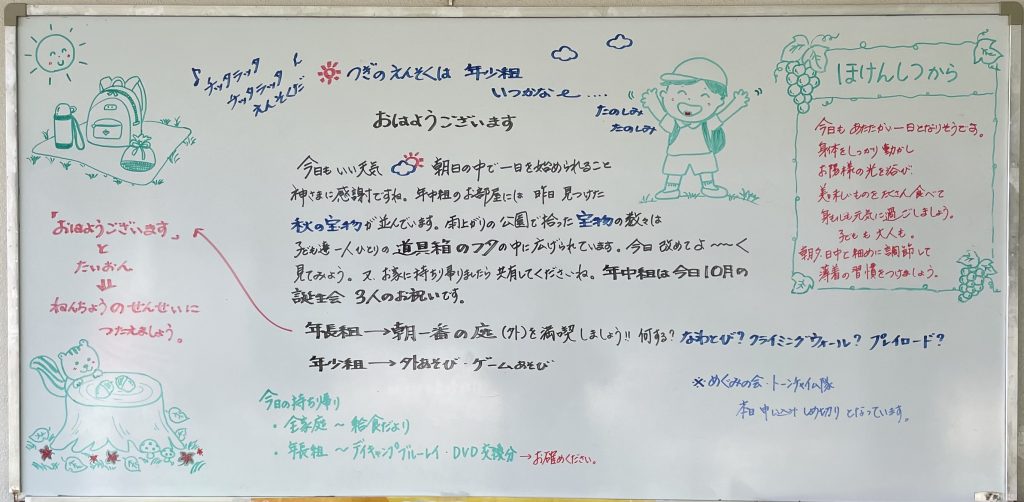 ♪ ケッタラッタ
ケッタラッタ ♪
えんそくだ
つぎの えんそくは 年少組
いつかな〜 ‥‥
たのしみ
たのしみ
おはようございます
今日も いい天気 朝日の中で一日を始められること
神さまに感謝ですね。年中組のお部屋には 昨日 見つけた
秋の宝物が並んでいます。雨上がりの 公園で拾った 宝物の数々は
子ども達一人ひとりの 道具箱のフタの中に広げられています。今日 改めて よ〜〜く
見てみよう。又、お家に持ち帰りましたら 共有してくださいね。年中組は今日10月の
誕生会 3人のお祝いです。
年長組 → 朝一番の庭(外)を満喫しましょう!! 何する? なわとび? クライミングウォール? プレイロード?
年少組 → 外あそび・ゲームあそび
「おはようございます」
と
たいおん
⇓
ねんちょうのせんせいに
つたえましょう。
今日の持ち帰り
・全家庭 〜 給食だより
・年長組 〜 デイキャンプブルーレイ・DVD交換分 → お確めください。
※めぐみの会・トーンチャイム隊
本日 申し込み しめ切り となっています。
ほけんしつから
今日も あたたかい一日となりそうです。
身体をしっかり動かし
お陽様の光を浴び、
美味しいものをたくさん食べて
身も心も元気に過ごしましょう。
子どもも大人も。
朝夕、日中と細めに調節して
薄着の習慣をつけましょう。